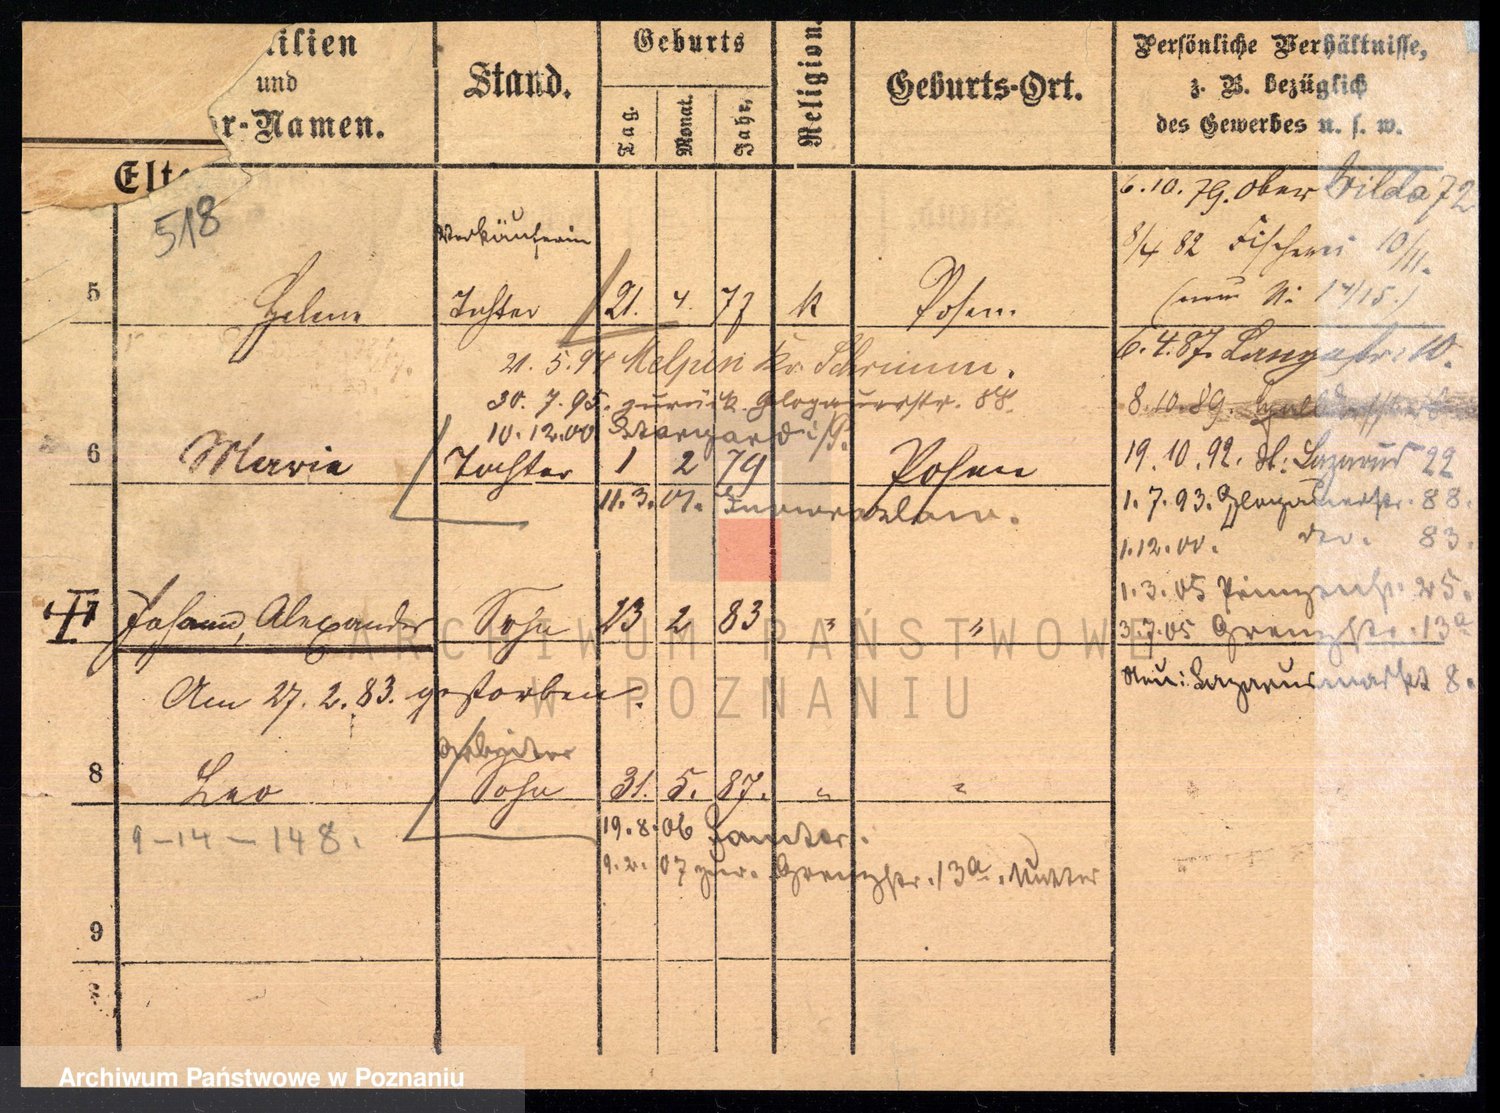 ilien
und
r-Namen.
Stand.
Geburts
Tag.
Monat.
Jahr,
Religion.
Geburts-Ort.
Persönliche Verhältnisse,
z. B. bezüglich
des Gewerbes u. s. w.
Elte
518
6.10.79. Ober Wilda 72
8/4 82 Fischerei 10/11.
(nun N: 14/15.)
Verkäuferin
5 Helene Tochter 21. 4. 77 k Posen.
6.4.87. Langestr: 10.
21. 5. 94 Melpin Kr. Schrimm.
30. 7. 95. zurück Glogauerstr. 88.
8.10.89.
10.12.00 Stargard i/P.
6 Maria Tochter 1 2 79 Posen
19.10.92. St: Lazarus 22
11.3.01. Inowrazlaw.
1.7.93. Glogauerstr. 88.
1.12.00. 83.
1.3.05 Prinzenstr. 25.
7 Johann, Alexander Sohn 23 2 83 " "
3.7.05 Grenzstr. 13a
Am 27. 2. 83. gestorben.
Neu: Lazarusmarkt 8.
Arbeiter
8 Leo Sohn 31. 5. 87. " "
9-14-148.
19.8.06
9.2.07 zur. Grenzstr. 13a. Mutter
9
ARCHIWUM PAŃSTWOWE
W POZNANIU
Archiwum Państwowe w Poznaniu